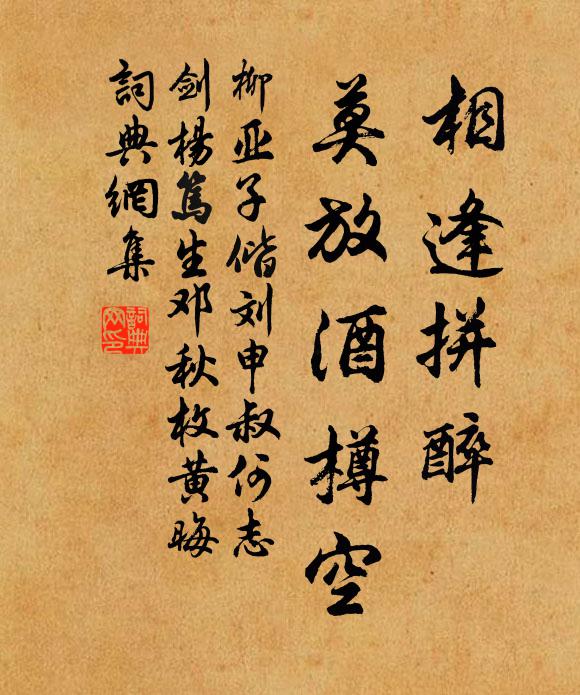 相逢拼醉
莫放酒樽空
柳亚子偕刘申叔何志
剑楊篤生邓秋枚黄晦
詞典網集
詞典網印